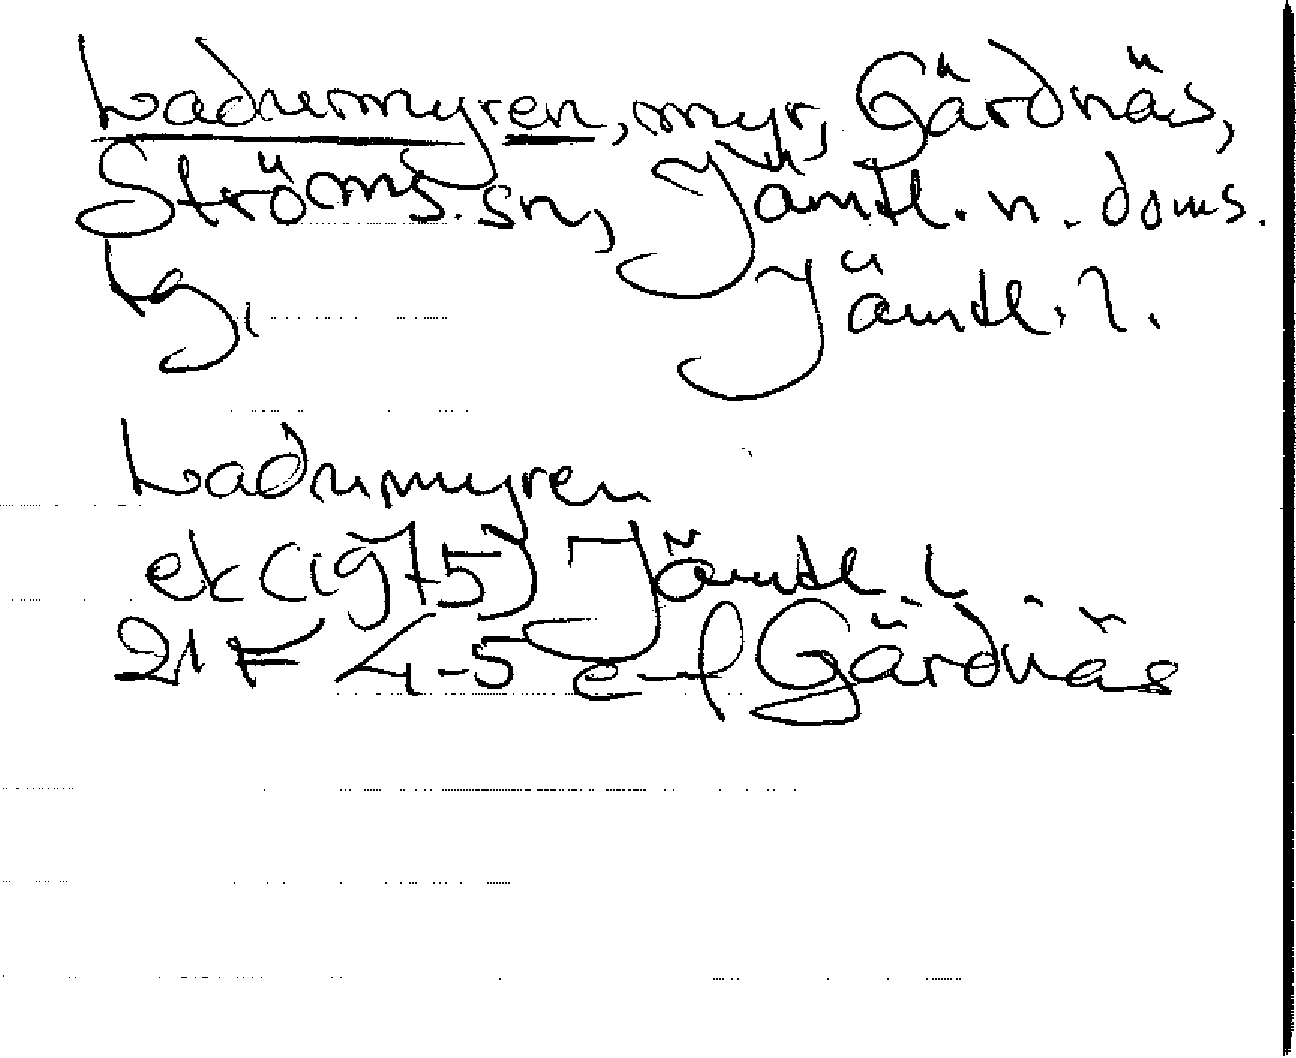 Ladumyren, myr, Gärdnäs,
Ströms. sn, Jämtl. n. doms.
lg, Jämtl. l.
Ladumyren
ek (1975) Jämtl. l
21 F 4-5 e-f Gärdnäs